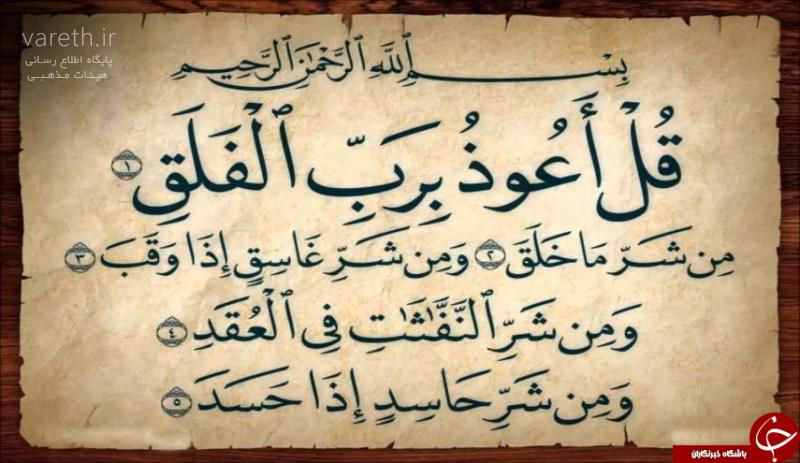 vareth.ir
پایگاه اطلاع رسانی
هیئات مذهبی
بِسْمِ ٱللَّهِ ٱلرَّحْمَٰنِ ٱلرَّحِيمِ
قُلْ أَعُوذُ بِرَبِّ ٱلْفَلَقِ ١
مِن شَرِّ مَا خَلَقَ ٢ وَمِن شَرِّ غَاسِقٍ إِذَا وَقَبَ ٣
وَمِن شَرِّ ٱلنَّفَّٰثَٰتِ فِى ٱلْعُقَدِ ٤
وَمِن شَرِّ حَاسِدٍ إِذَا حَسَدَ ٥
باشگاه خبرنگاران